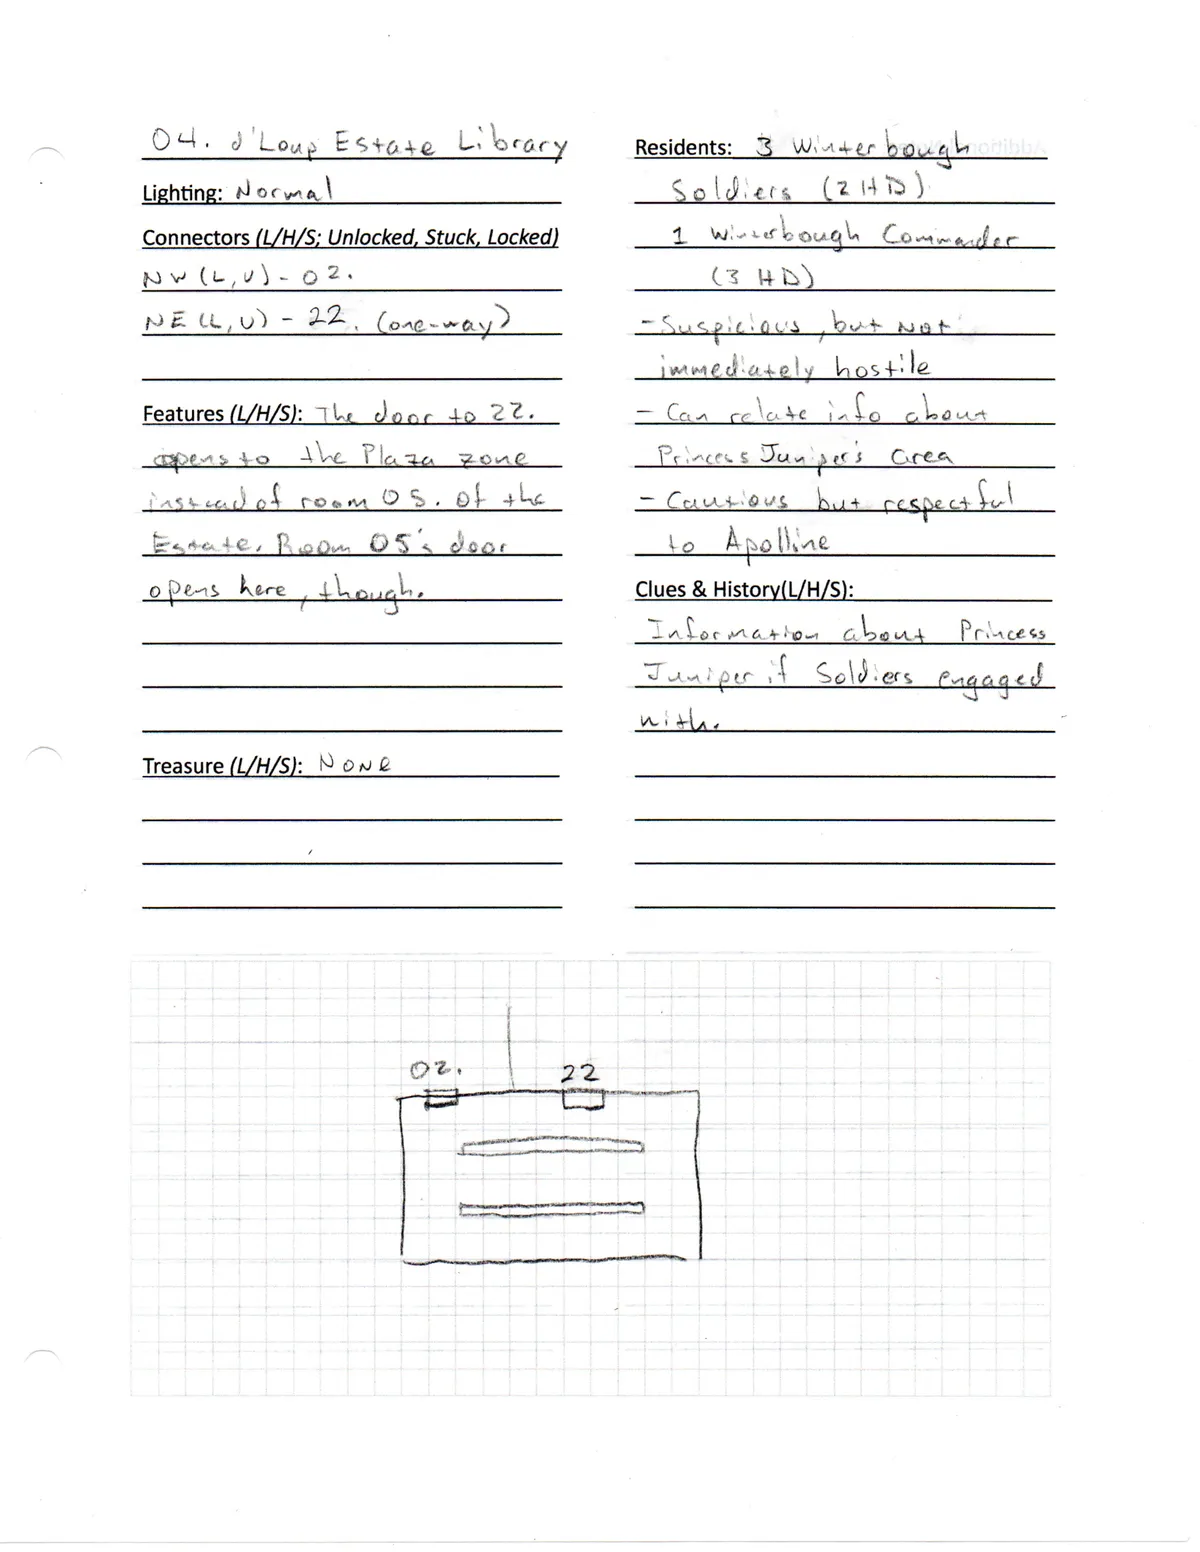 04. d'Loup Estate Library
Lighting: Normal
Connectors (L/H/S; Unlocked, Stuck, Locked)
NW (L,U) - 02.
NE (L, U) - 22. (one-way)
Features (L/H/S): The door to 22.
opens to the Plaza zone
instead of room 05. of the
Estate. Room 05's door
opens here, though.
Treasure (L/H/S): None
Residents: 3 Winterbough
Soldiers (2 HD)
1 Winterbough Commander
(3 HD)
- Suspicious, but not
immediately hostile
- Can relate info about
Princess Juniper's area
- Cautious but respectful
to Apolline
Clues & History(L/H/S):
Information about Princess
Juniper if Soldiers engaged
with.
02.
22